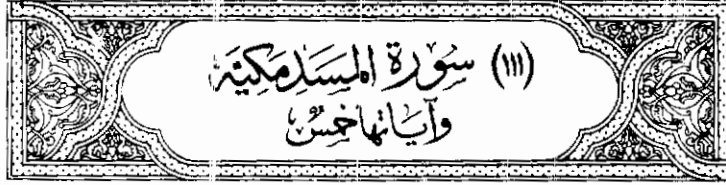 (١١١) سُورَةُ المَسَدِ مَكِيَّة
وَآيَاتها خَمسٌ